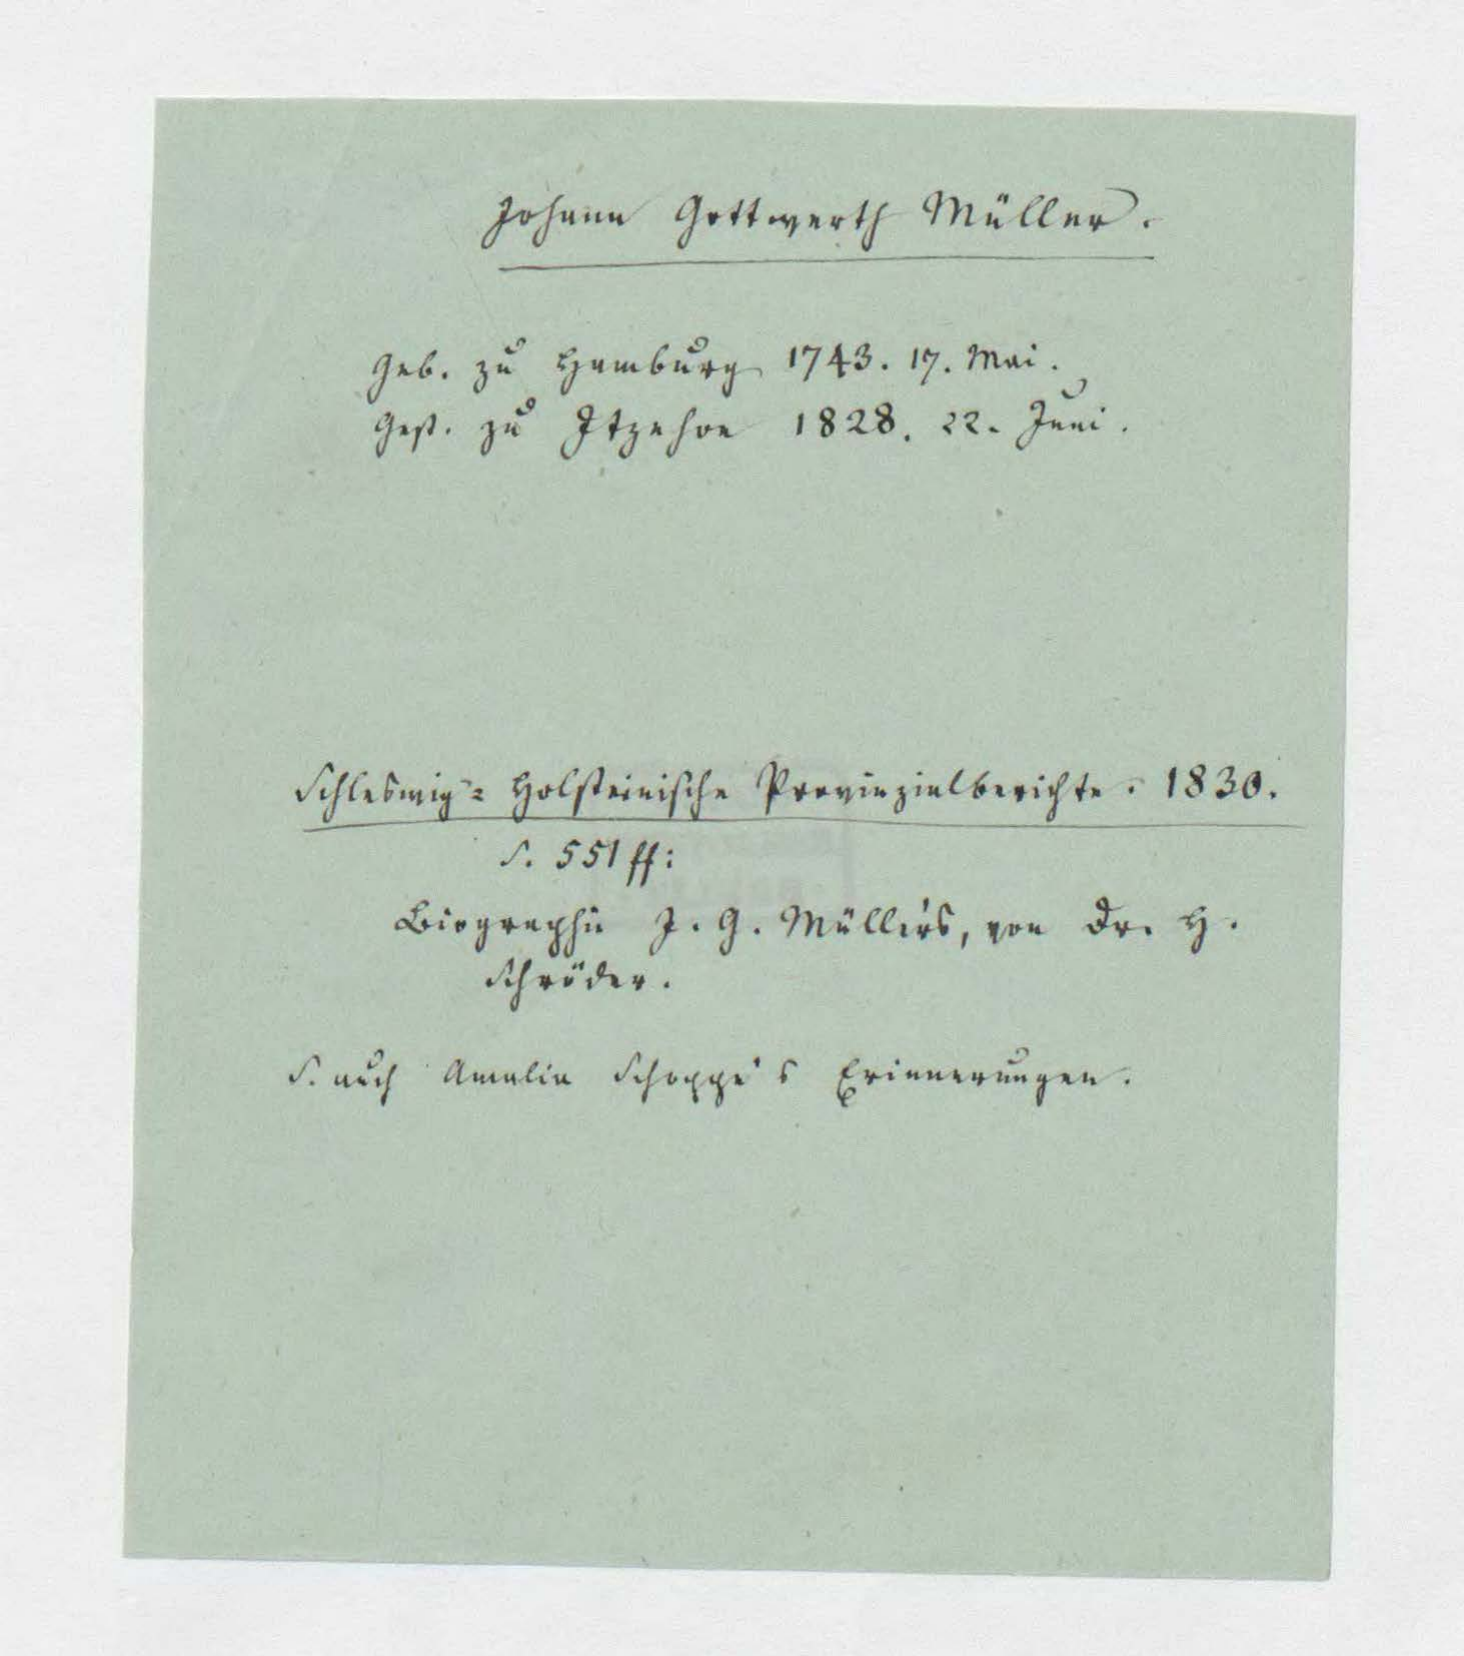 Johann Gottwerth Müller.
Geb. zu Hamburg 1743. 17. Mai.
Gest. zu Itzehoe 1828. 22. Juni.
Schleswig-Holsteinische Provinzialberichte. 1830.
S. 551 ff:
Biographie J. G. Müller's, von Dr. H.
Schröder.
S. auch Amalia Schoppe's Erinnerungen.